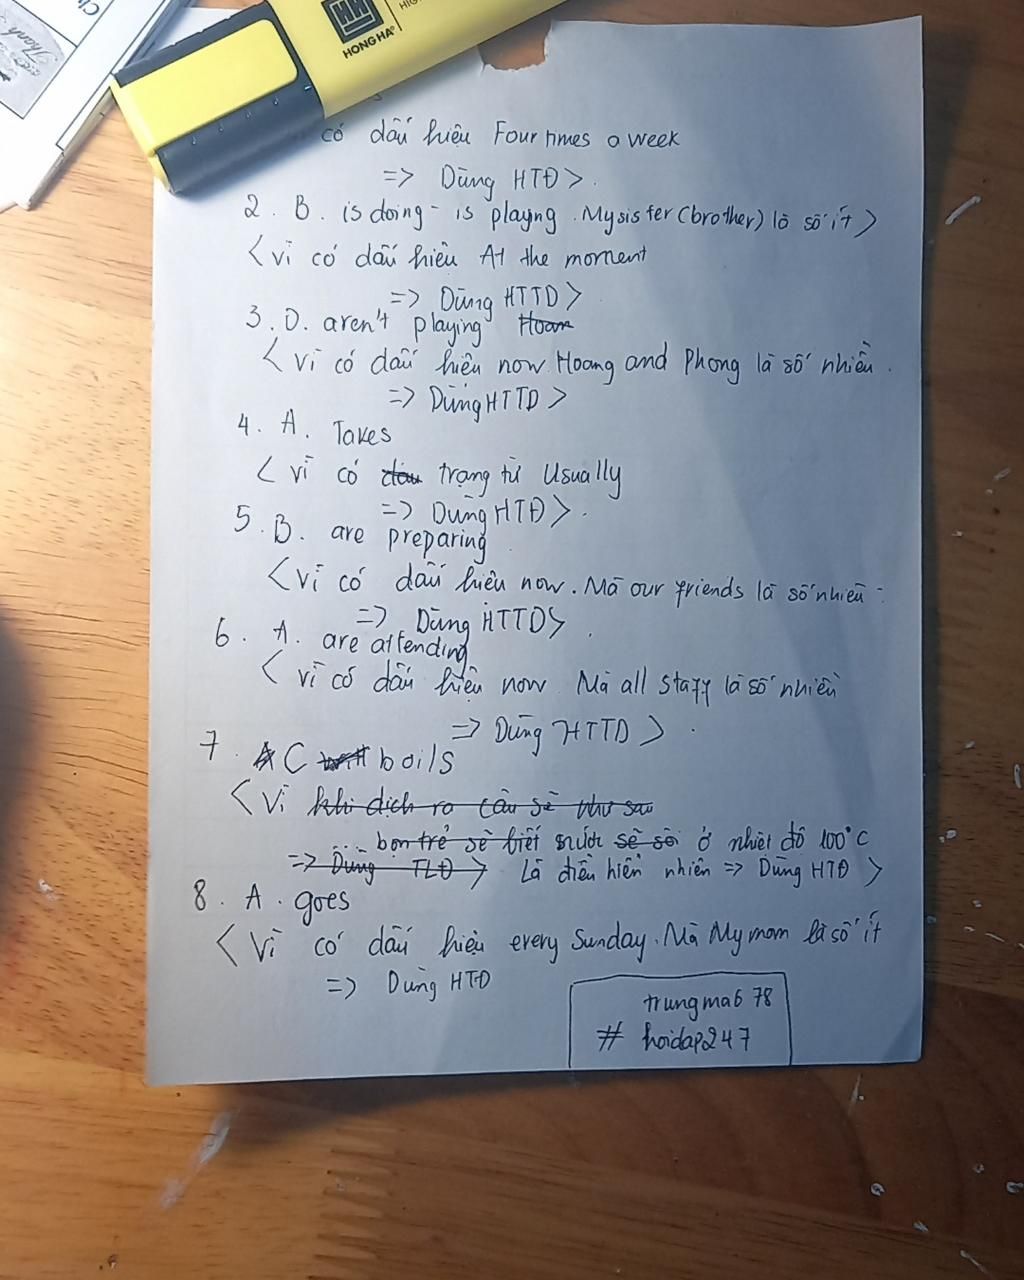 HONG HA
có dấu hiệu Four times a week
=> Dùng HTĐ>.
2. B. is doing - is playing. My sister (brother) là số ít >
<vì có dấu hiệu At the moment
=> Dùng HTTD>
3. D. aren't playing
<vì có dấu hiệu now Hoang and Phong là số nhiều.
=> Dùng HTTD>
4. A. Takes
<vì có trạng từ Usually
=> Dùng HTĐ>.
5. B. are preparing
<vì có dấu hiệu now. Mà our friends là số nhiều.
=> Dùng HTTD>.
6. A. are attending
<vì có dấu hiệu now Mà all staff là số nhiều
=> Dùng HTTD>.
7. C boils
<Vì khi dịch ra câu sẽ như sau
bọn trẻ sẽ biết nước sẽ sôi ở nhiệt độ 100°C
=> Dùng TLĐ> Là điều hiển nhiên => Dùng HTĐ>
8. A. goes
<Vì có dấu hiệu every Sunday. Mà My mom là số ít
=> Dùng HTĐ
trungma678
# hoidap247